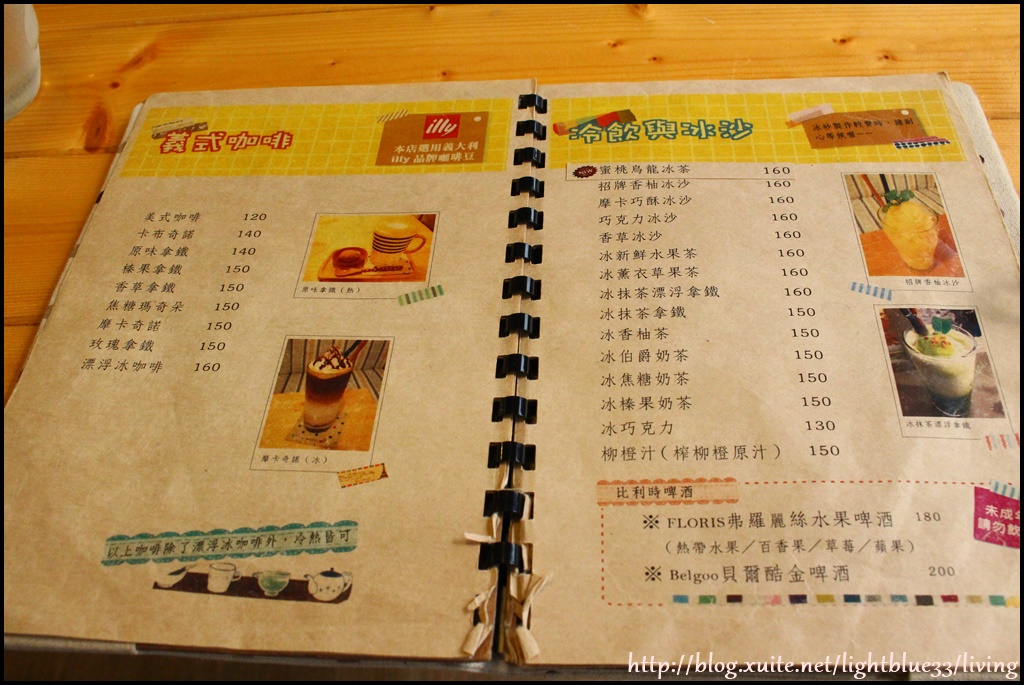 義式咖啡
illy
本店選用義大利
illy 品牌咖啡豆
美式咖啡 120
卡布奇諾 140
原味拿鐵 140
榛果拿鐵 150
香草拿鐵 150
焦糖瑪奇朵 150
摩卡奇諾 150
玫瑰拿鐵 150
漂浮冰咖啡 160
原味拿鐵（熱）
摩卡奇諾（冰）
以上咖啡除了漂浮冰咖啡外，冷熱皆可
冷飲與冰沙
冰砂製作較費時，請耐
心等候喔~~
NEW 蜜桃烏龍冰茶 160
招牌香柚冰沙 160
摩卡巧酥冰沙 160
巧克力冰沙 160
香草冰沙 160
冰新鮮水果茶 160
冰薰衣草果茶 160
冰抹茶漂浮拿鐵 160
冰抹茶拿鐵 150
冰香柚茶 150
冰伯爵奶茶 150
冰焦糖奶茶 150
冰榛果奶茶 150
冰巧克力 130
柳橙汁（榨柳橙原汁） 150
招牌香柚冰沙
冰抹茶漂浮拿鐵
比利時啤酒
※ FLORIS弗羅麗絲水果啤酒 180
（熱帶水果／百香果／草莓／蘋果）
※ Belgoo貝爾酷金啤酒 200
未成年
請勿飲
http://blog.xuite.net/lightblue33/living